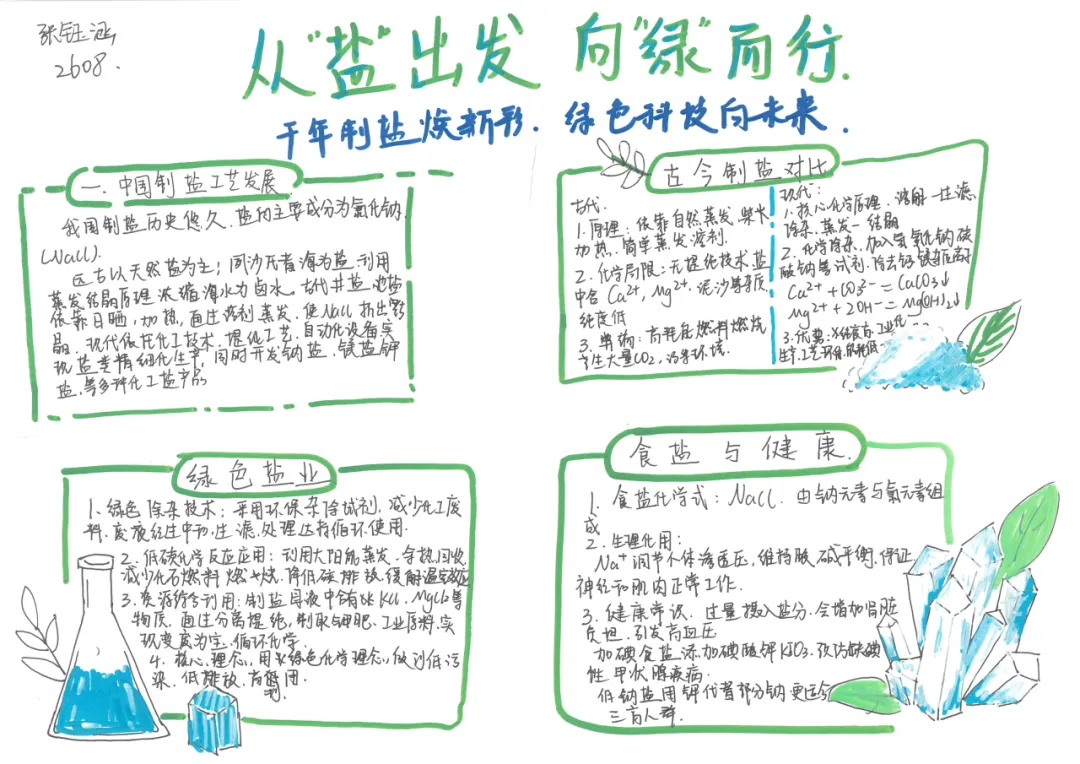 张钰涵
2608.
从"盐"出发 向"绿"而行.
千年制盐焕新彩.绿色科技向未来.
一.中国制盐工艺发展.
我国制盐历史悠久.盐的主要成分为氯化钠.
(NaCl).
远古以天然盐为主;夙沙氏煮海为盐.利用
蒸发结晶原理 浓缩海水为卤水.古代井盐.池盐
依靠日晒,加热,通过溶剂蒸发.使NaCl析出
晶.现代依托化工技术.提纯工艺.自动化设备实
现盐类精细化生产,同时开发钠盐.镁盐钾
盐.等多种化工盐产品
古今制盐对比
古代.
1.原理:依靠自然蒸发.柴火
加热.简单蒸发溶剂.
2.化学局限:无提纯技术.盐
中含Ca²⁺,Mg²⁺.泥沙等杂质
纯度低
3.弊端:高耗能燃料燃烧
产生大量CO₂.污染环境.
现代:
1.核心化学原理.溶解-过滤.
除杂.蒸发-结晶
2.化学除杂.加入氢氧化钠碳
酸钠等试剂.除去钙镁杂质离子
Ca²⁺+CO₃²⁻=CaCO₃↓
Mg²⁺+2OH⁻=Mg(OH)₂↓
3.优势:纯度高.工业化
生产.工艺环保.能耗低
绿色盐业
1.绿色除杂技术:采用环保杂除试剂.减少化工废
料.废液经过中和.过滤.处理达标循环使用.
2.低碳化学反应应用:利用太阳能蒸发.余热回收
减少化石燃料燃烧.降低碳排放.缓解温室效应
3.资源综合利用:制盐母液中含有KCl.MgCl₂等
物质.通过分离提纯,制取钾肥.工业原料.实
现变废为宝.循环化学.
4.核心理念.用绿色化学理念.做到低污
染.低排放.高利用.
食盐与健康.
1.食盐化学式:NaCl.由钠元素与氯元素组
成
2.生理作用:
Na⁺调节人体渗透压,维持酸碱平衡.保证
神经和肌肉正常工作.
3.健康常识.过量摄入盐分.会增加肾脏
负担.引发高血压
加碘食盐添加碘酸钾KIO₃.预防缺碘
性甲状腺疾病.
低钠盐用钾代替部分钠更适合
三高人群.